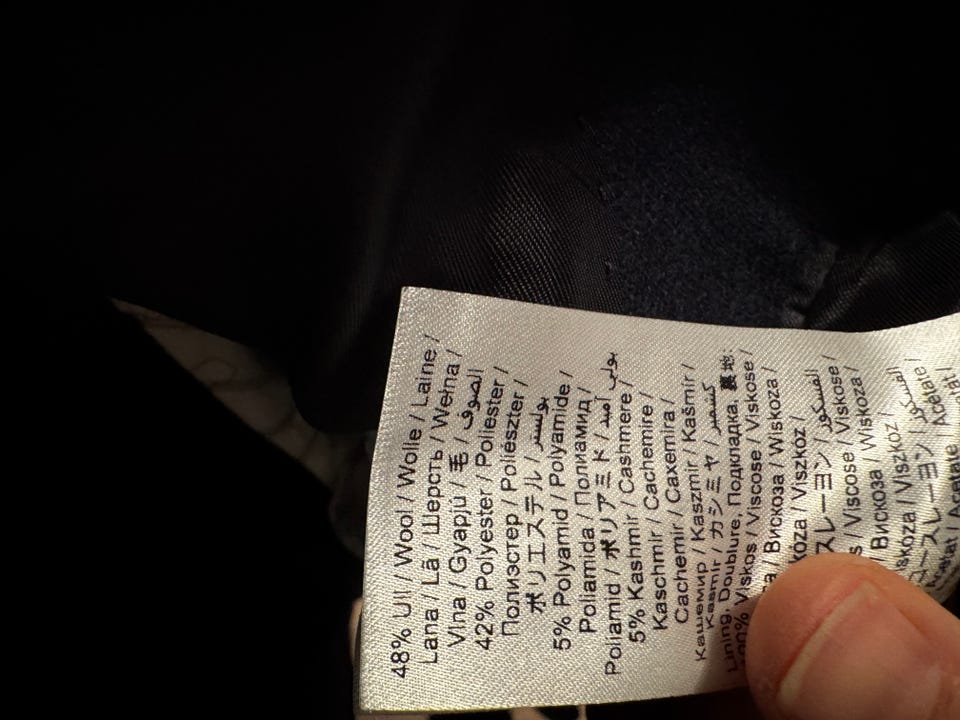 48% Ull / Wool / Wolle / Laine /
Lana / Lã / Шерсть / Wełna /
Vlna / Gyapjú / 毛 / الصوف
42% Polyester / Poliester /
Полиэстер / Poliészter /
ポリエステル / بوليستر
5% Polyamid / Polyamide /
Poliamida / Полиамид /
Poliamid / ポリアミド / بولي أميد
5% Kashmir / Cashmere /
Kaschmir / Cachemire /
Cachemir / Caxemira /
Кашемир / Kaszmir / Kašmír /
Kasmír / カシミヤ / كشمير
Lining, Doublure, Подкладка, 裏地:
100% Viskos / Viscose / Viskose /
/ Вискоза / Wiskoza /
/ Viszkóz /
スレーヨン /
/ Viscose / Viskose /
/ Вискоза / Wiskoza /
Viskoza / Viszkóz /
レーヨン /
Acetate /
Acetat / Acetate